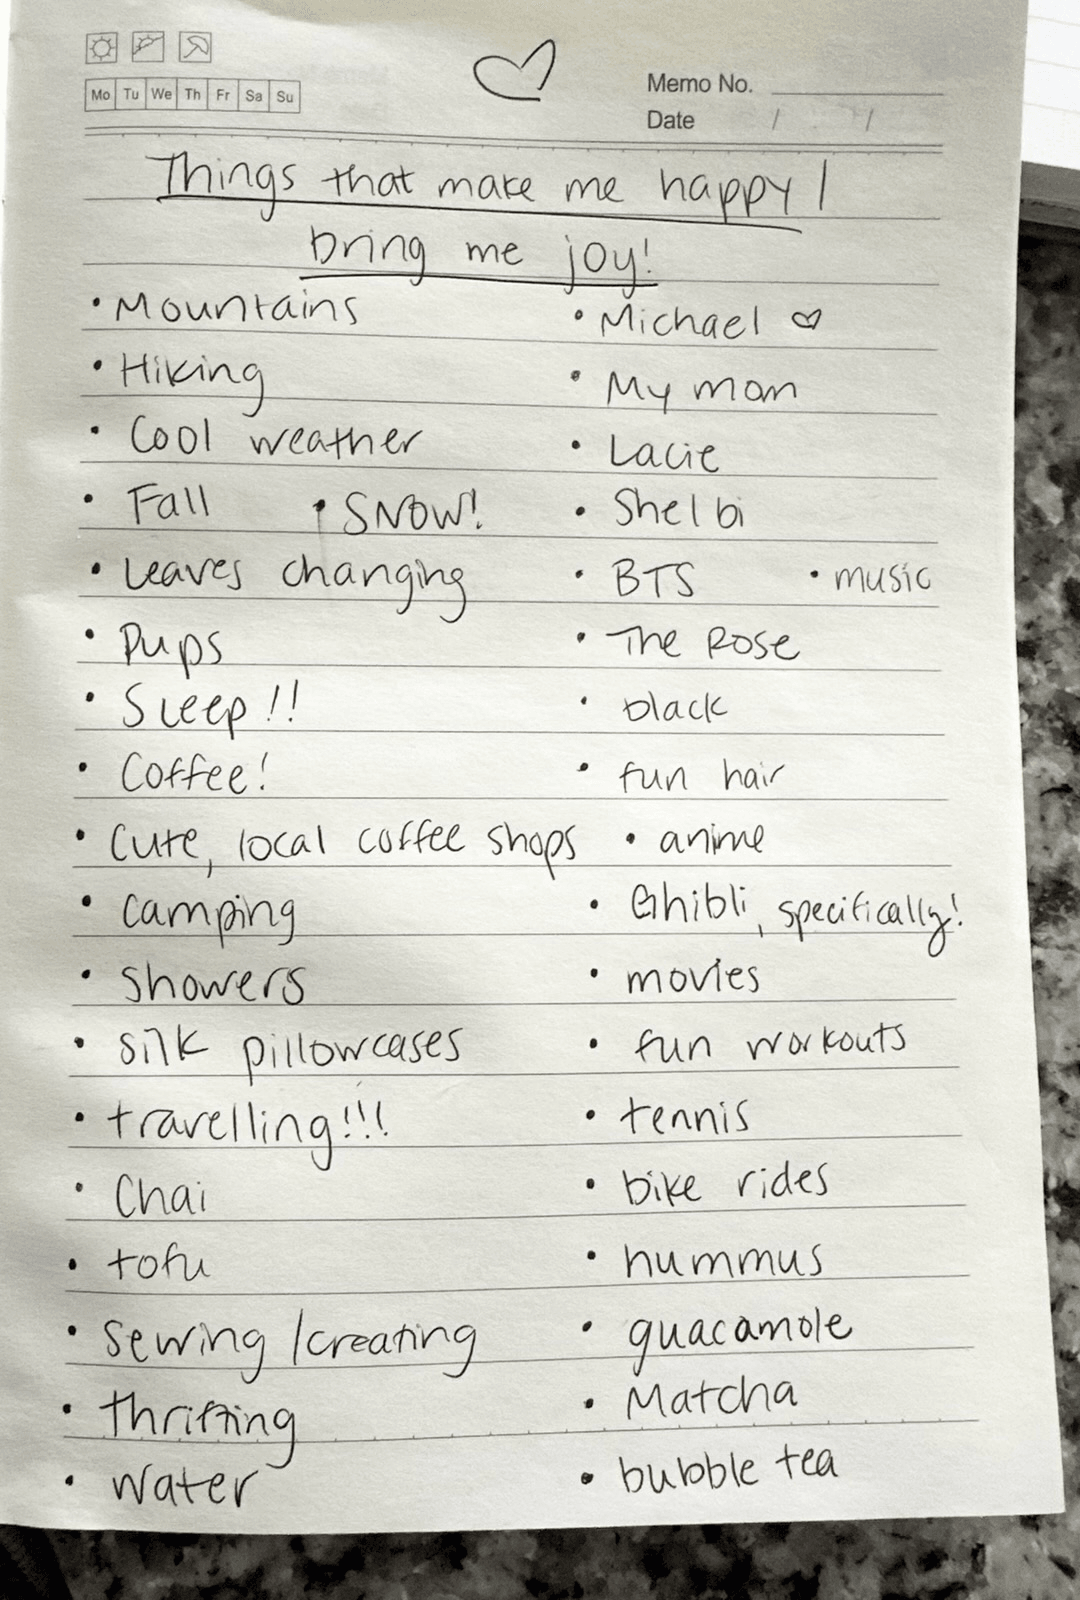 Mo Tu We Th Fr Sa Su
Memo No.
Date / /
Things that make me happy /
bring me joy!
• Mountains
• Hiking
• Cool weather
• Fall • SNOW!
• Leaves changing
• Pups
• Sleep!!
• Coffee!
• Cute, local coffee shops
• camping
• showers
• silk pillowcases
• travelling!!!
• Chai
• tofu
• sewing/creating
• thrifting
• water
• Michael ♡
• My mom
• Lacie
• Shelbi
• BTS • music
• The Rose
• black
• fun hair
• anime
• Ghibli, specifically!
• movies
• fun workouts
• tennis
• bike rides
• hummus
• guacamole
• Matcha
• bubble tea